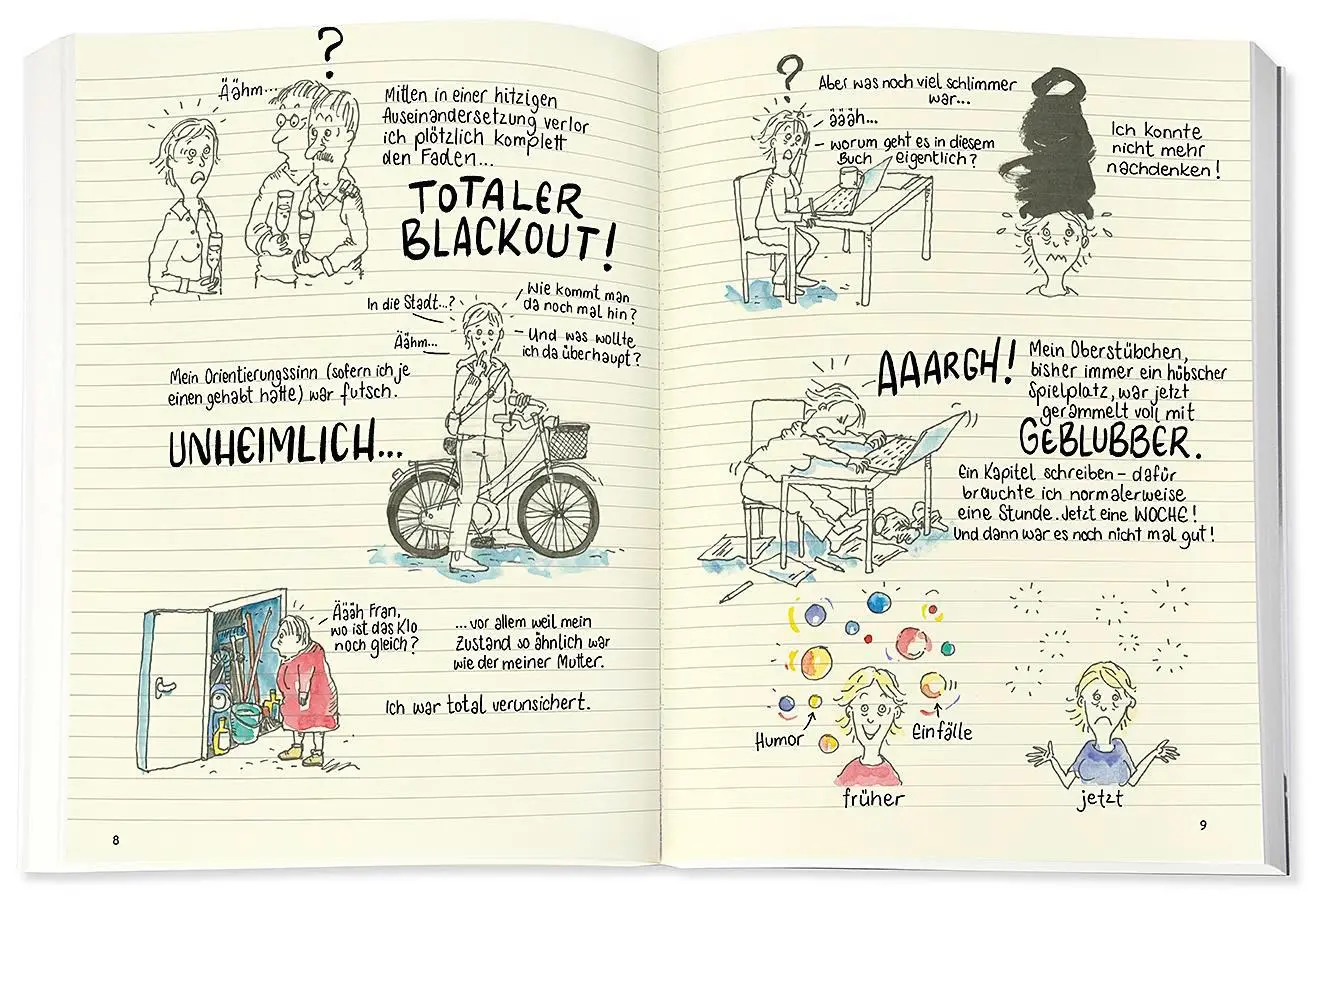 ?
Äähm...
Mitten in einer hitzigen
Auseinandersetzung verlor
ich plötzlich komplett
den Faden...
TOTALER
BLACKOUT!
In die Stadt...?
Äähm...
Wie kommt man
da noch mal hin?
- Und was wollte
ich da überhaupt?
Mein Orientierungssinn (sofern ich je
einen gehabt hatte) war futsch.
UNHEIMLICH...
Äääh Fran,
wo ist das Klo
noch gleich?
...vor allem weil mein
Zustand so ähnlich war
wie der meiner Mutter.
Ich war total verunsichert.
8
?
Aber was noch viel schlimmer
war...
- äääh...
- worum geht es in diesem
Buch eigentlich?
Ich konnte
nicht mehr
nachdenken!
AAARGH!
Mein Oberstübchen,
bisher immer ein hübscher
Spielplatz, war jetzt
gerammelt voll mit
GEBLUBBER.
Ein Kapitel schreiben - dafür
brauchte ich normalerweise
eine Stunde. Jetzt eine WOCHE!
Und dann war es noch nicht mal gut!
Humor
Einfälle
früher
jetzt
9